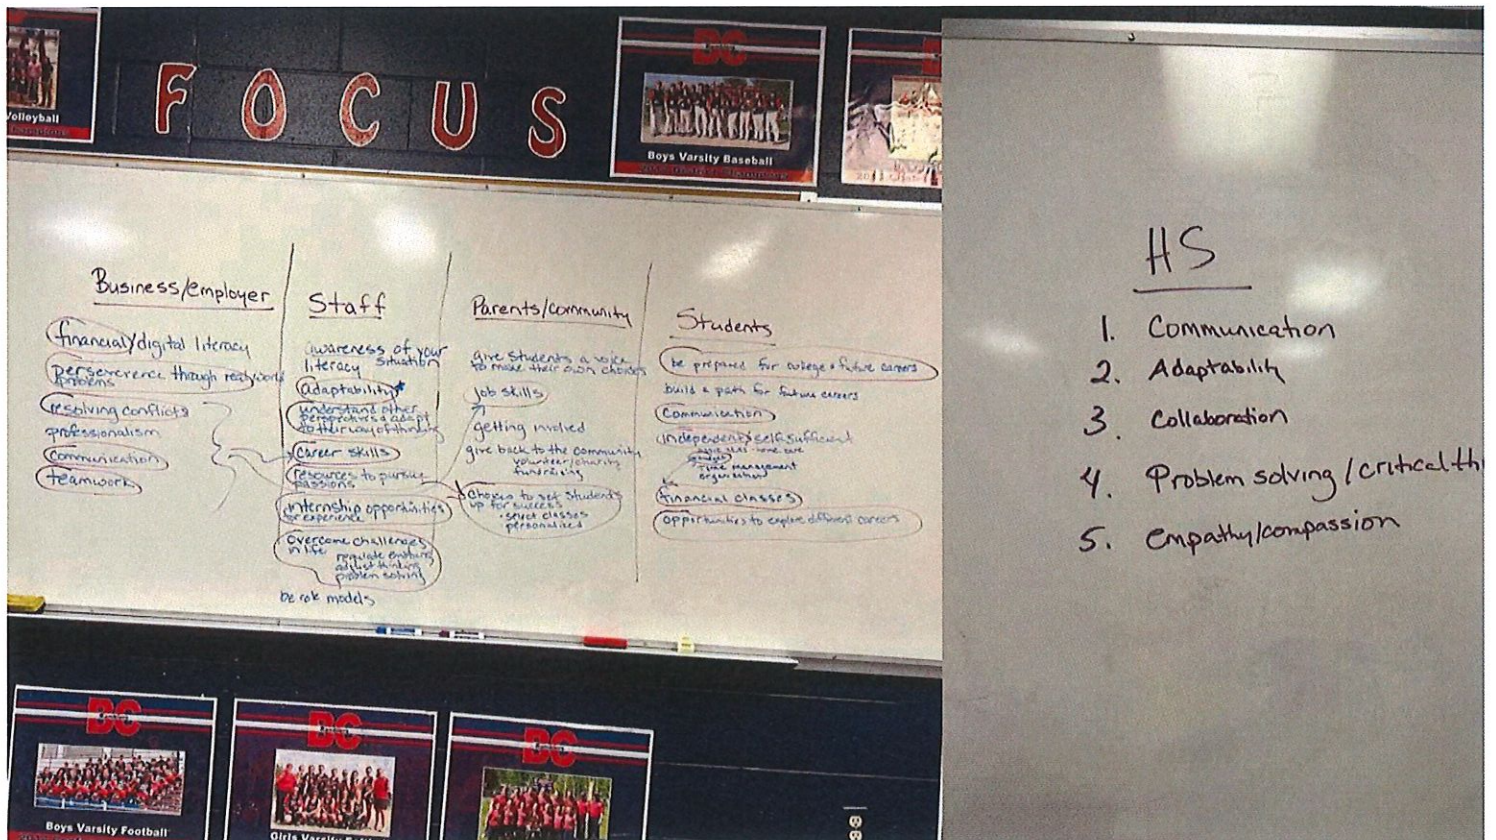 Volleyball
FOCUS
BC
Boys Varsity Baseball
Business/employer
financial/digital literacy
perseverence through real world
problems
resolving conflicts
professionalism
communication
teamwork
Staff
awareness of your
literacy situation
adaptability*
understand other
perspectives & adapt
to their way of thinking
career skills
resources to pursue
passions
internship opportunities
or experience
overcome challenges
in life
regulate emotions
adjust thinking
problem solving
be role models
Parents/community
give students a voice
to make their own choices
job skills
getting involved
give back to the community
volunteer/charity
fundraising
choices to set students
up for success
• select classes
personalized
Students
be prepared for college & future careers
build a path for future careers
Communication
independent/self sufficient
time management
organization
financial classes
opportunities to explore different careers
HS
1. Communication
2. Adaptability
3. Collaboration
4. Problem solving/critical th
5. Empathy/compassion
BC
Boys Varsity Football
BC
Girls Varsity
BC